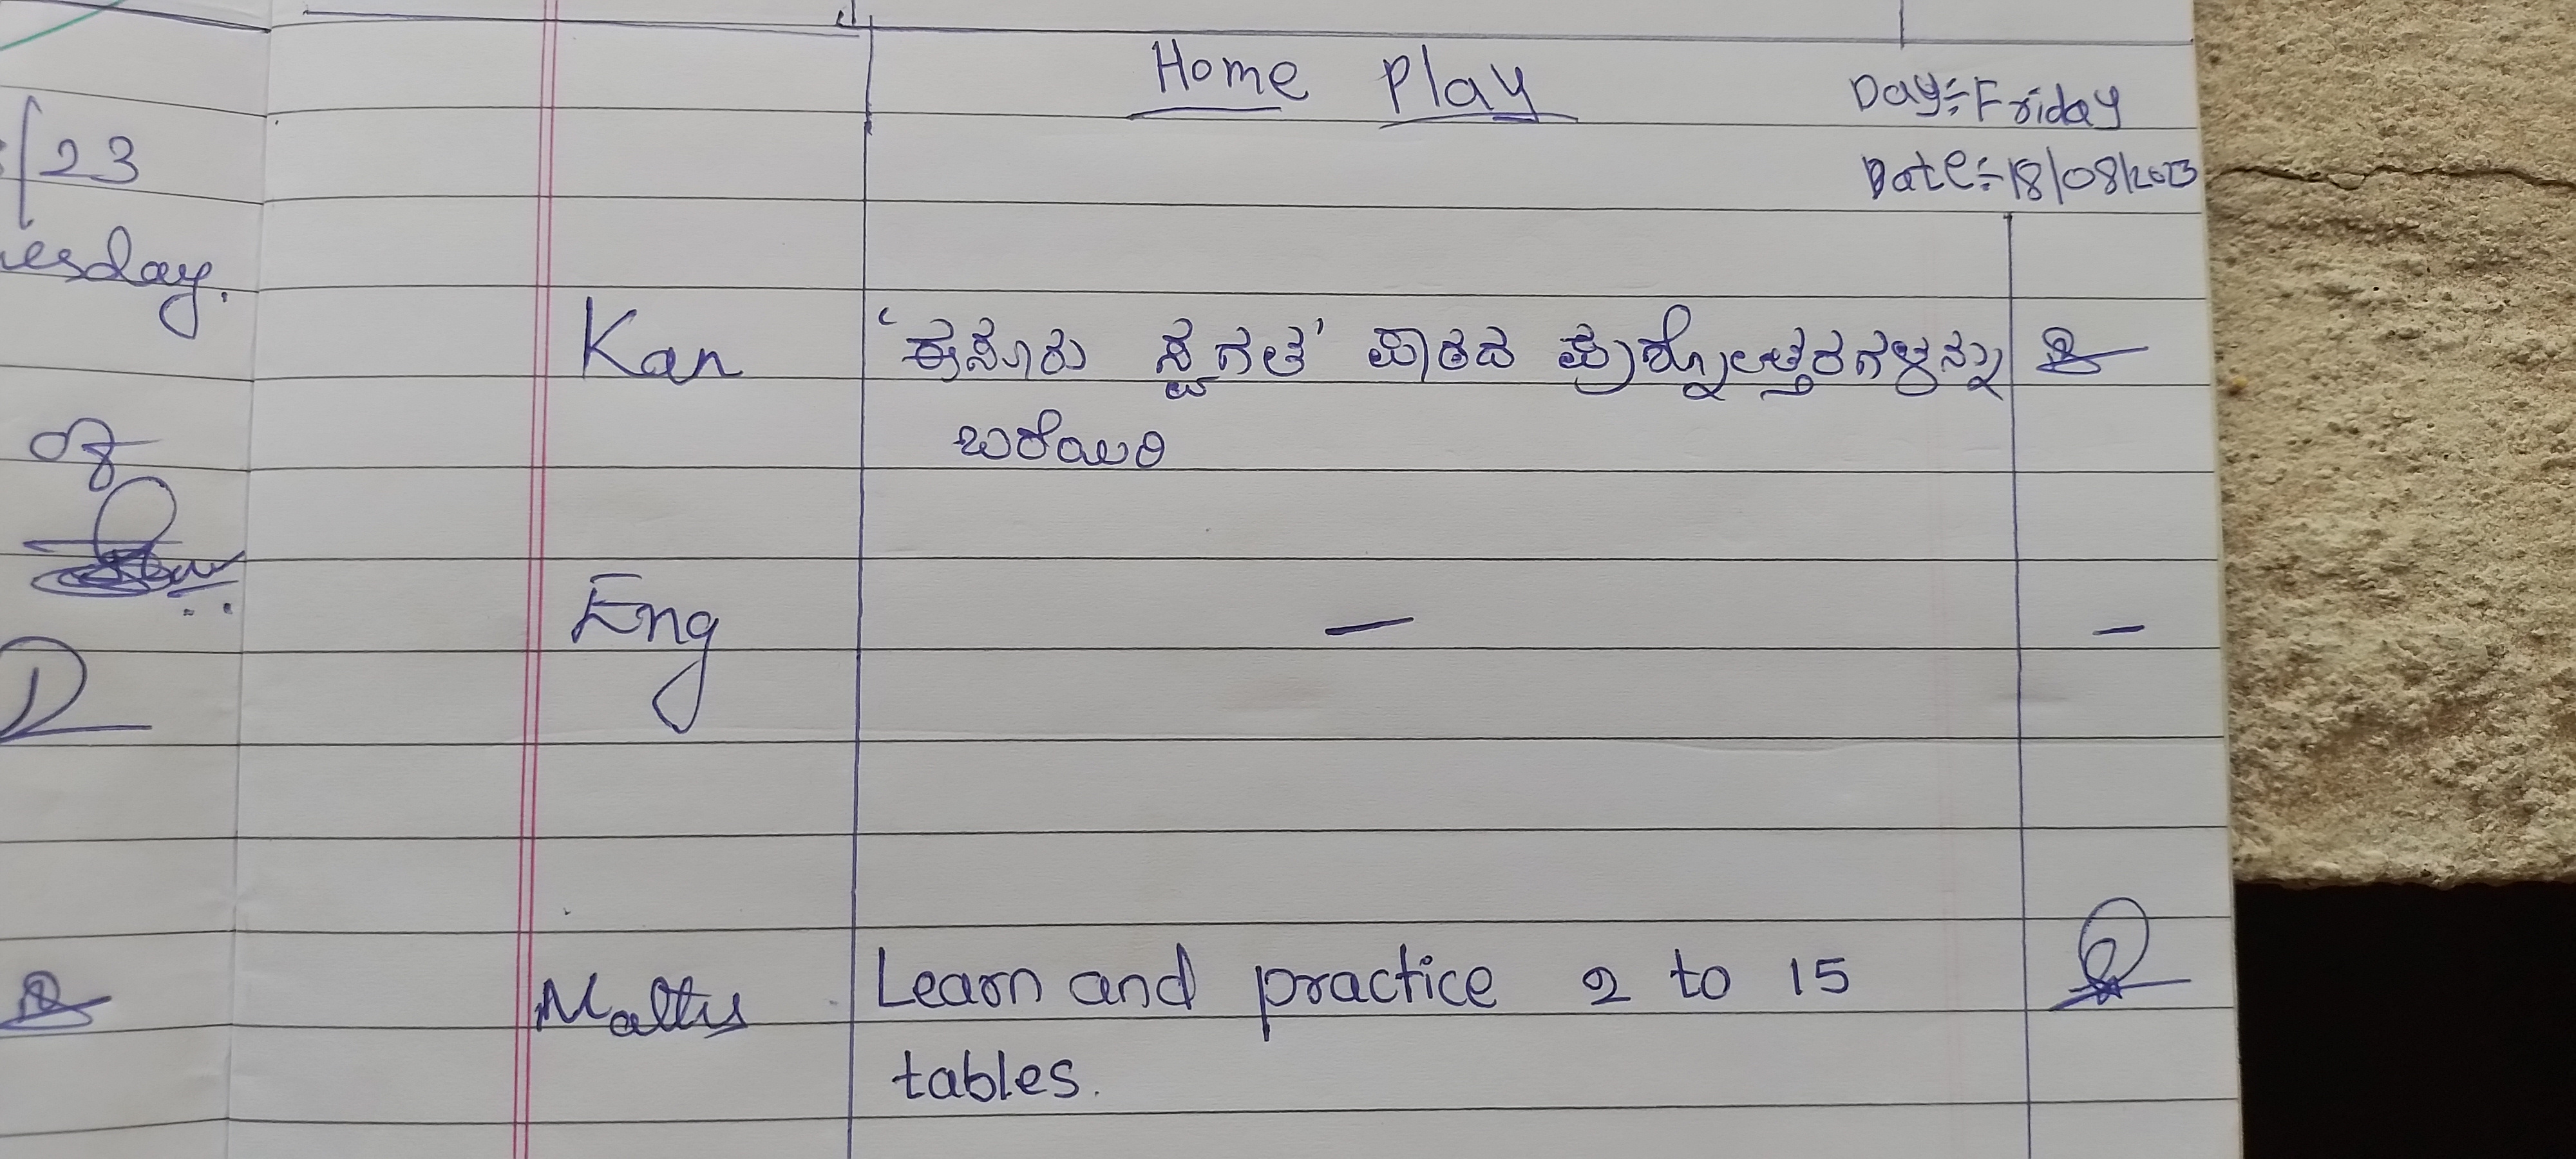 Home Play
Day:- Friday
Date:- 18/08/2023
23
esday.
of
Kan
'ಈಸೂರು ಸ್ವಗತ' ಪಾಠದ ಪ್ರಶ್ನೋತ್ತರಗಳನ್ನು
ಬರೆಯಿರಿ
Eng — –
Maths Learn and practice 2 to 15
tables.